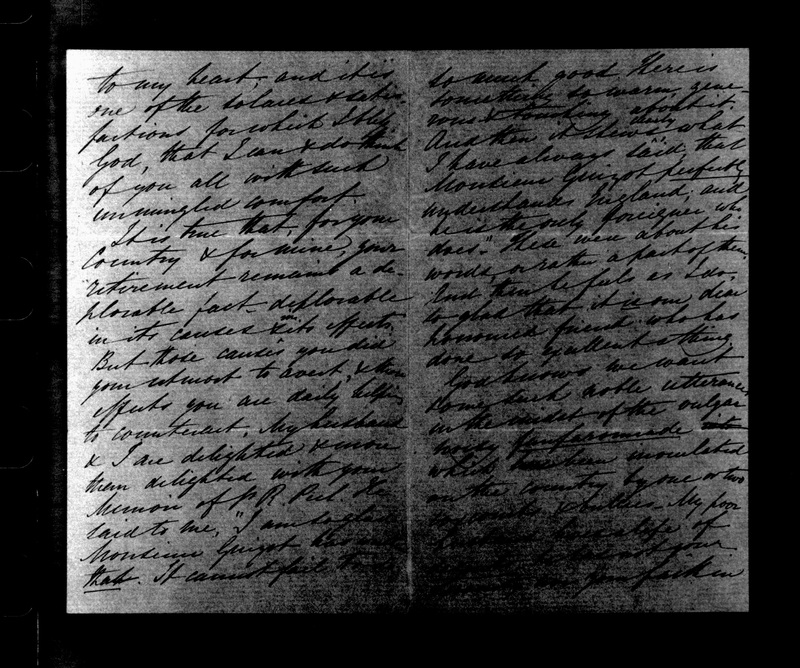 to my heart, and it is
one of the solaces & satis-
factions, for which I bless
God, that I can & do think
of you all with such
unmingled comfort.
It is true that, for your
Country & for mine, your
retirement remains a de-
plorable fact - deplorable
in its causes & in its effects.
But those causes you did
your utmost to avert, & those
effects you are daily helping
to counteract. My husband
& I are delighted & more
than delighted with your
Memoir of Sir R. Peel. He
said to me, "I am so glad
Monsieur Guizot has
that. It cannot fail to
so much good. There is
something so warm, gene-
rous & touching about it.
And then it shews what
I have always said, that
Monsieur Guizot perfectly
understands England; and
he is the only foreigner who
does." These were about his
words, or rather a part of them.
And then he feels as I do,
so glad that it is our dear
honoured friend who has
done so excellent a thing.
God knows we want
some such noble utterances
in the midst of the vulgar
noisy fanfaronnade
which has been inoculated
on the country by one or two
& bullies. My poor
of
not your
faith in